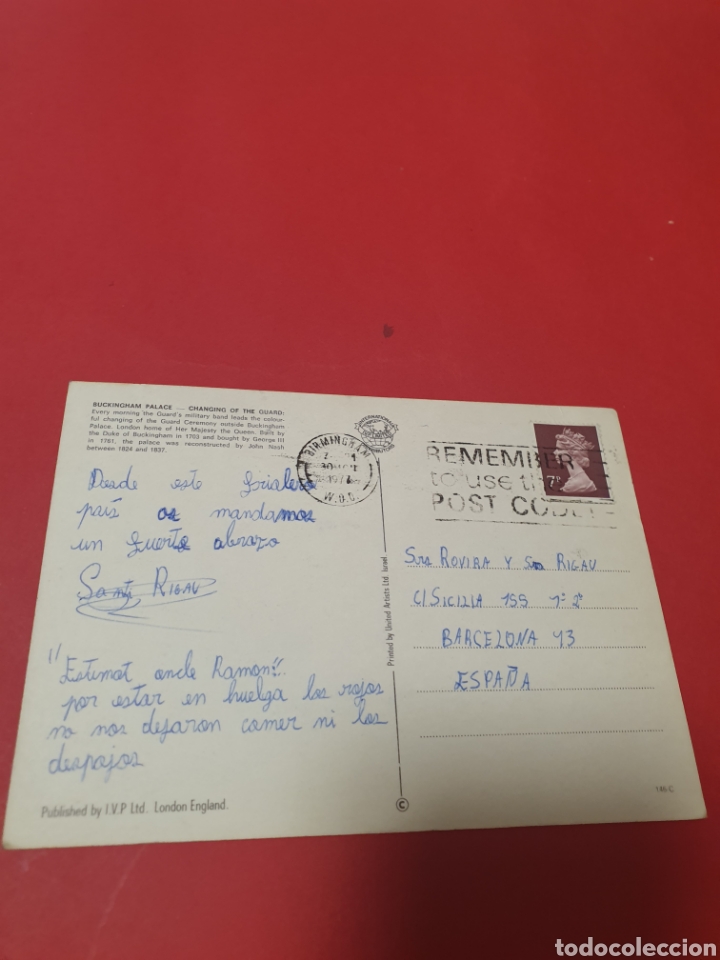 BUCKINGHAM PALACE ... CHANGING OF THE GUARD:
Every morning the Guard's military band leads the colour-
ful changing of the Guard Ceremony outside Buckingham
Palace. London home of Her Majesty the Queen. Built by
the Duke of Buckingham in 1703 and bought by George III
in 1761, the palace was reconstructed by John Nash
between 1824 and 1837.
Desde este
país os mandamos
un fuerte abrazo
Santi RIGAU
"Estimat oncle Ramon"
por estar en huelga los rojos
no nos dejaron comer ni los
despojos
Published by I.V.P Ltd. London England.
Printed by United Artists Ltd Israel
©
BIRMINGHAM
1977
REMEMBER
to use th
POST COD
7P
Sra ROVIRA Y Sra RIGAU
C/SICILIA 155 1º 2ª
BARCELONA 13
ESPAÑA
146-C
todocoleccion